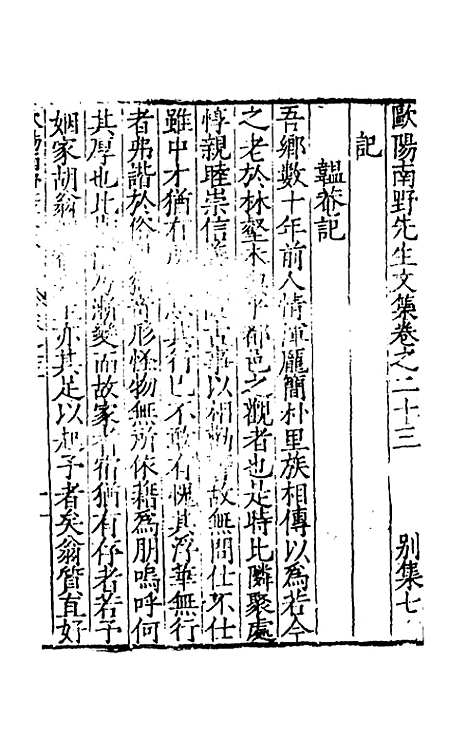 歐陽南野先生文集卷之二十三 別集七
記
韞菴記
吾鄉數十年前人情渾龐簡朴里族相傳以為若今
之老於林壑未 乎都邑之觀者也是時比隣聚處
惇親睦崇信 古事以相勸 故無問仕不仕
雖中才猶有 其行己不敢有愧其浮華無行
者弗諧於俗 奇形怪物無所依藉為朋嗚呼何
其厚也比 漸變而故家 宿猶有存者若予
姻家胡翁 亦其足以起予者矣翁質直好